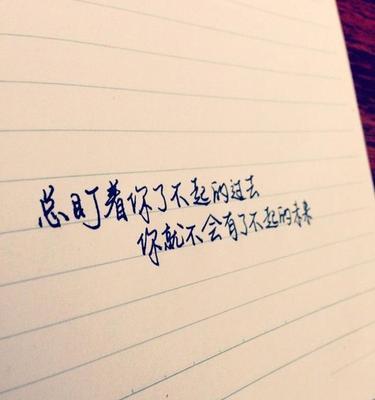 总盯着你了不起的过去
你就不会有了不起的未来